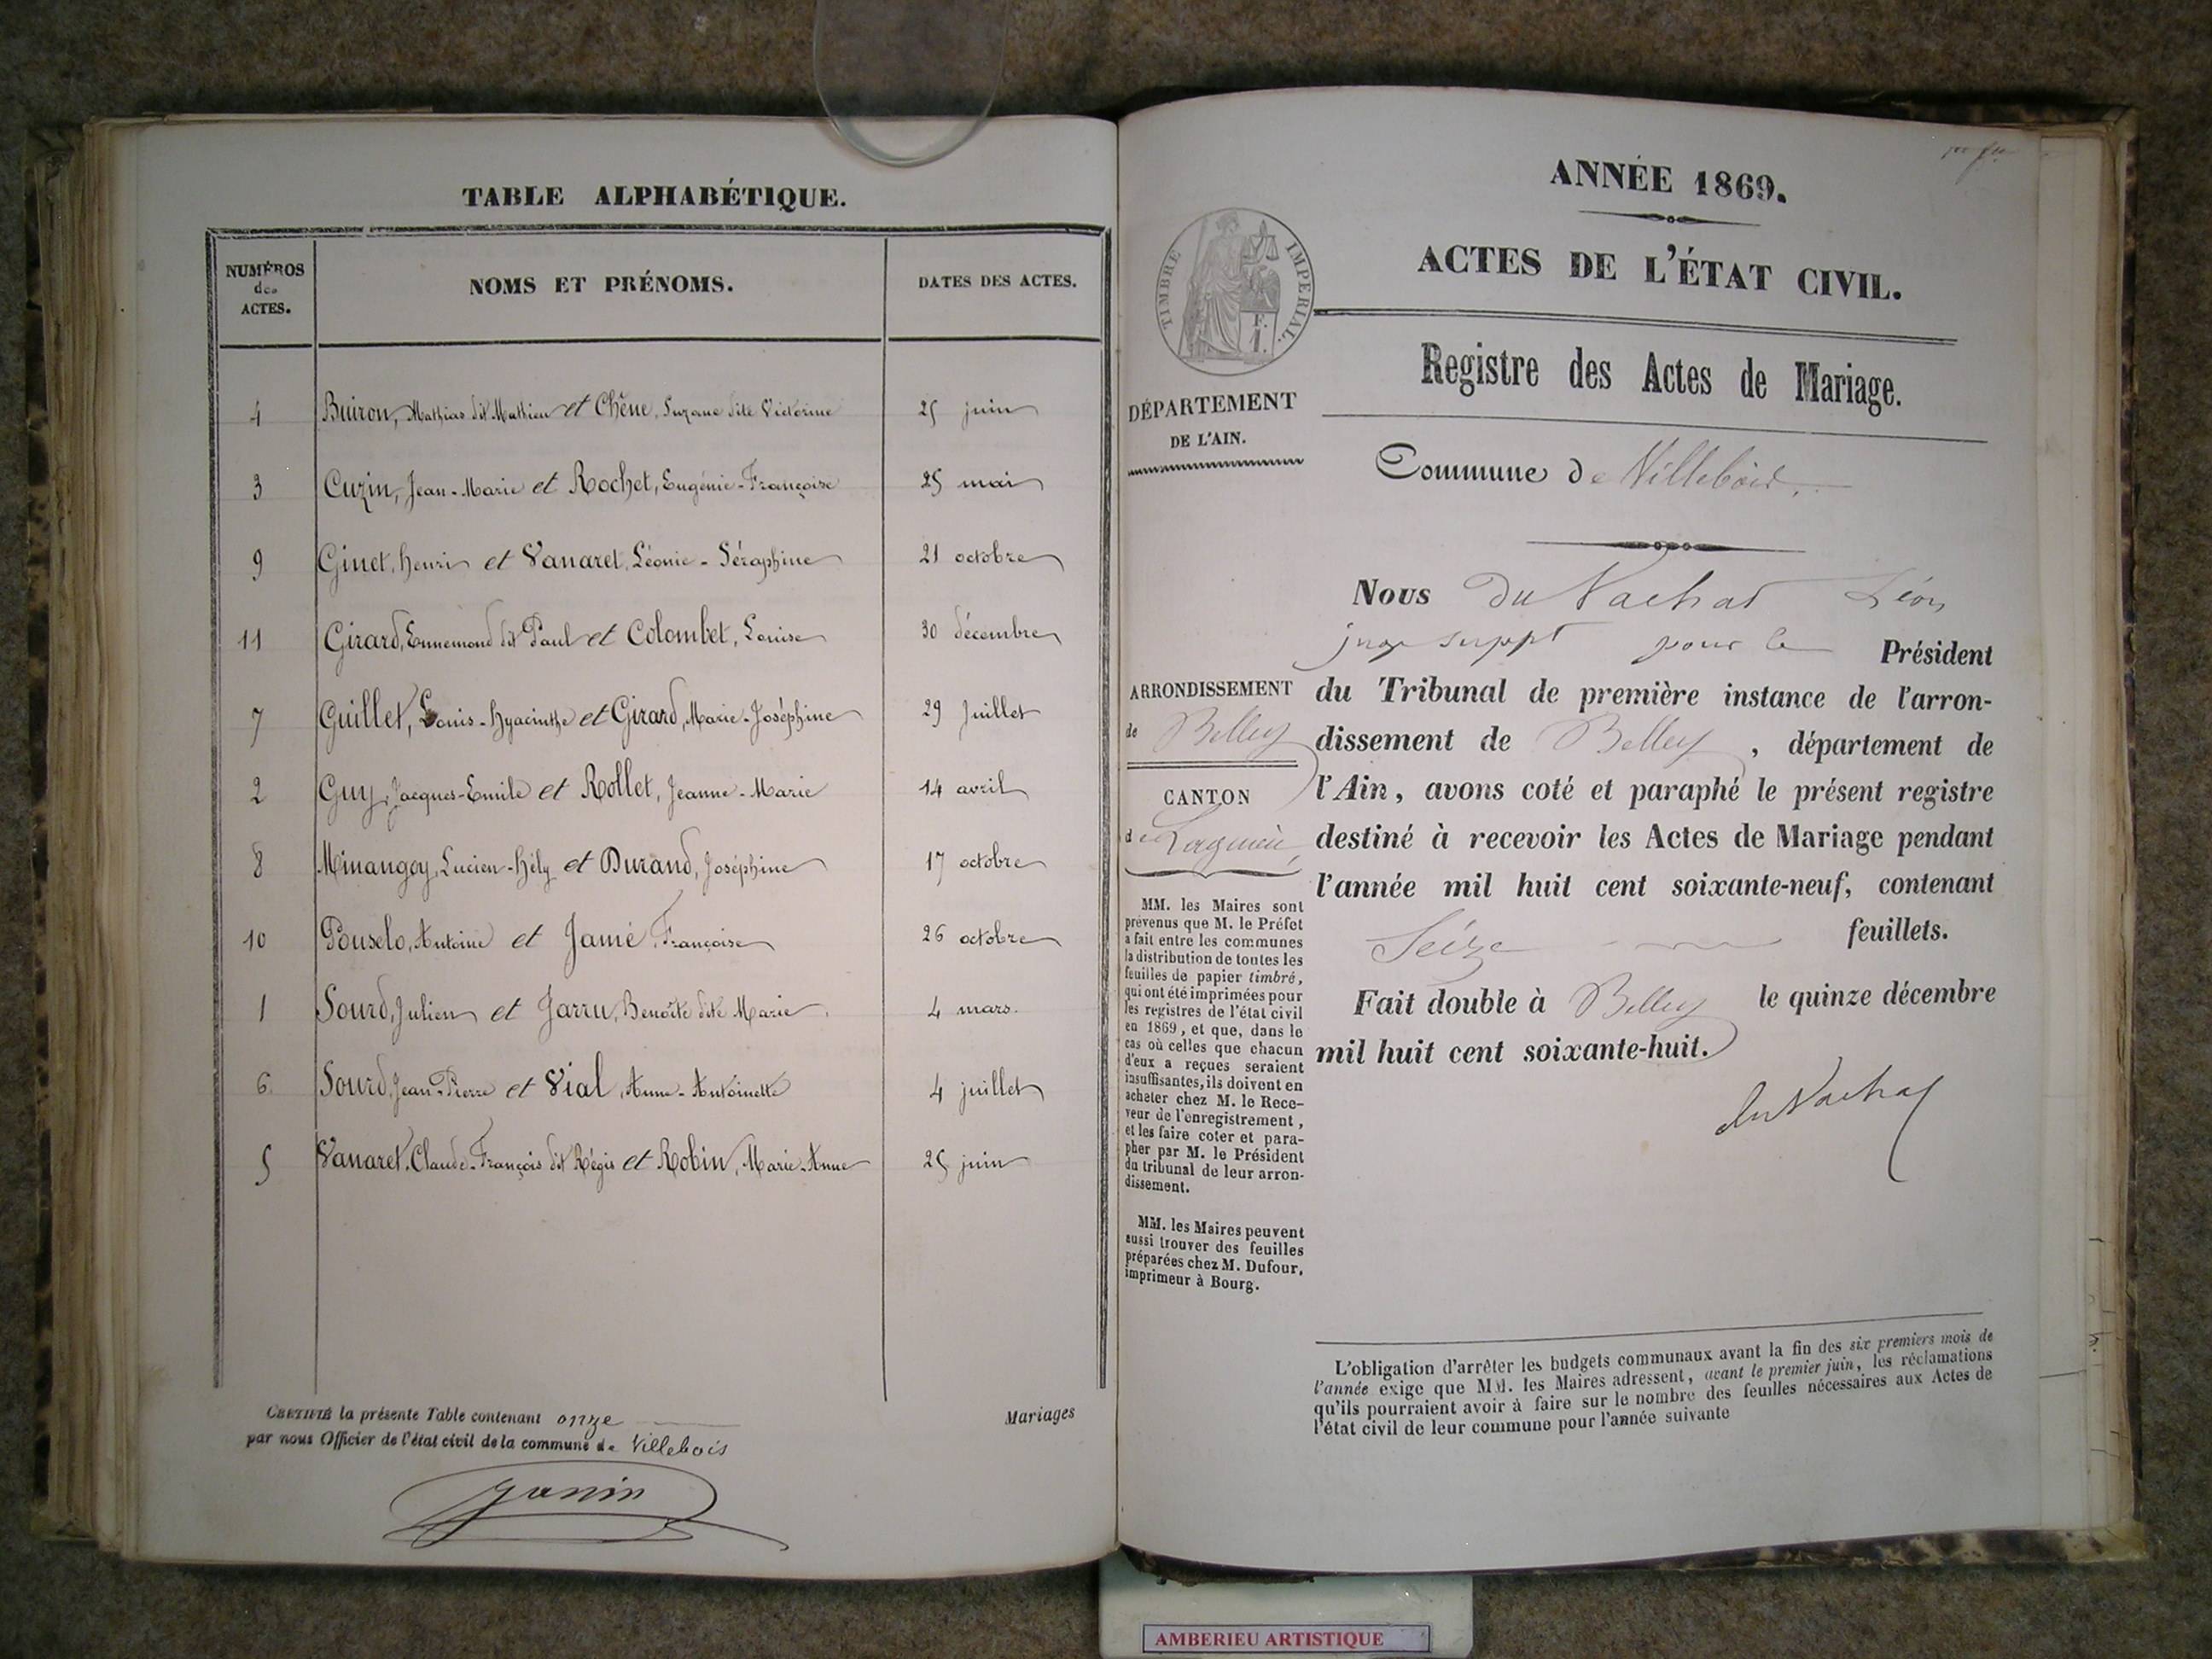 TABLE ALPHABÉTIQUE.
NUMÉROS des ACTES. NOMS ET PRÉNOMS. DATES DES ACTES.
4 Buiron, Mathias dit Mathieu et Chêne, Suzane dite Victorine 25 juin
3 Cuzin, Jean-Marie et Rochet, Eugénie-Françoise 25 mai
9 Ginet, henri et Vanaret, Léonie-Séraphine 21 octobre
11 Girard, Ennemond dit Paul et Colombet, Louise 30 décembre
7 Guillet, Louis-hyacinthe et Girard, Marie-Joséphine 29 Juillet
2 Guy, Jacques-Emile et Rollet, Jeanne-Marie 14 avril
8 Minangoy, Lucien-hély et Durand, Joséphine 17 octobre
10 Pouselo, Antoine et Jamé, Françoise 26 octobre
1 Sourd, Julien et Jarru, Benoîte dite Marie. 4 mars.
6. Sourd, Jean-Pierre et Vial, Anne-Antoinette 4 juillet
5 Vanaret, Claude-François dit Régis et Robin, Marie-Anne 25 juin
CERTIFIÉ la présente Table contenant onze
Mariages
par nous Officier de l'état civil de la commune de Villebois
Janin
ANNÉE 1869.
ACTES DE L'ÉTAT CIVIL.
TIMBRE IMPÉRIAL.
F.
1.
Registre des Actes de Mariage.
DÉPARTEMENT
DE L'AIN.
Commune de Villebois.
ARRONDISSEMENT
de Belley
CANTON
de Lagnieu,
MM. les Maires sont
prévenus que M. le Préfet
a fait entre les communes
la distribution de toutes les
feuilles de papier timbré,
qui ont été imprimées pour
les registres de l'état civil
en 1869, et que, dans le
cas où celles que chacun
d'eux a reçues seraient
insuffisantes, ils doivent en
acheter chez M. le Rece-
veur de l'enregistrement,
et les faire coter et para-
pher par M. le Président
du tribunal de leur arron-
dissement.
MM. les Maires peuvent
aussi trouver des feuilles
préparées chez M. Dufour,
imprimeur à Bourg.
Nous Du Vachat Léon
juge suppt pour le Président
du Tribunal de première instance de l'arron-
dissement de Belley, département de
l'Ain, avons coté et paraphé le présent registre
destiné à recevoir les Actes de Mariage pendant
l'année mil huit cent soixante-neuf, contenant
Seize feuillets.
Fait double à Belley le quinze décembre
mil huit cent soixante-huit.
du Vachat
L'obligation d'arrêter les budgets communaux avant la fin des six premiers mois de
l'année exige que MM. les Maires adressent, avant le premier juin, les réclamations
qu'ils pourraient avoir à faire sur le nombre des feuilles nécessaires aux Actes de
l'état civil de leur commune pour l'année suivante
AMBERIEU ARTISTIQUE